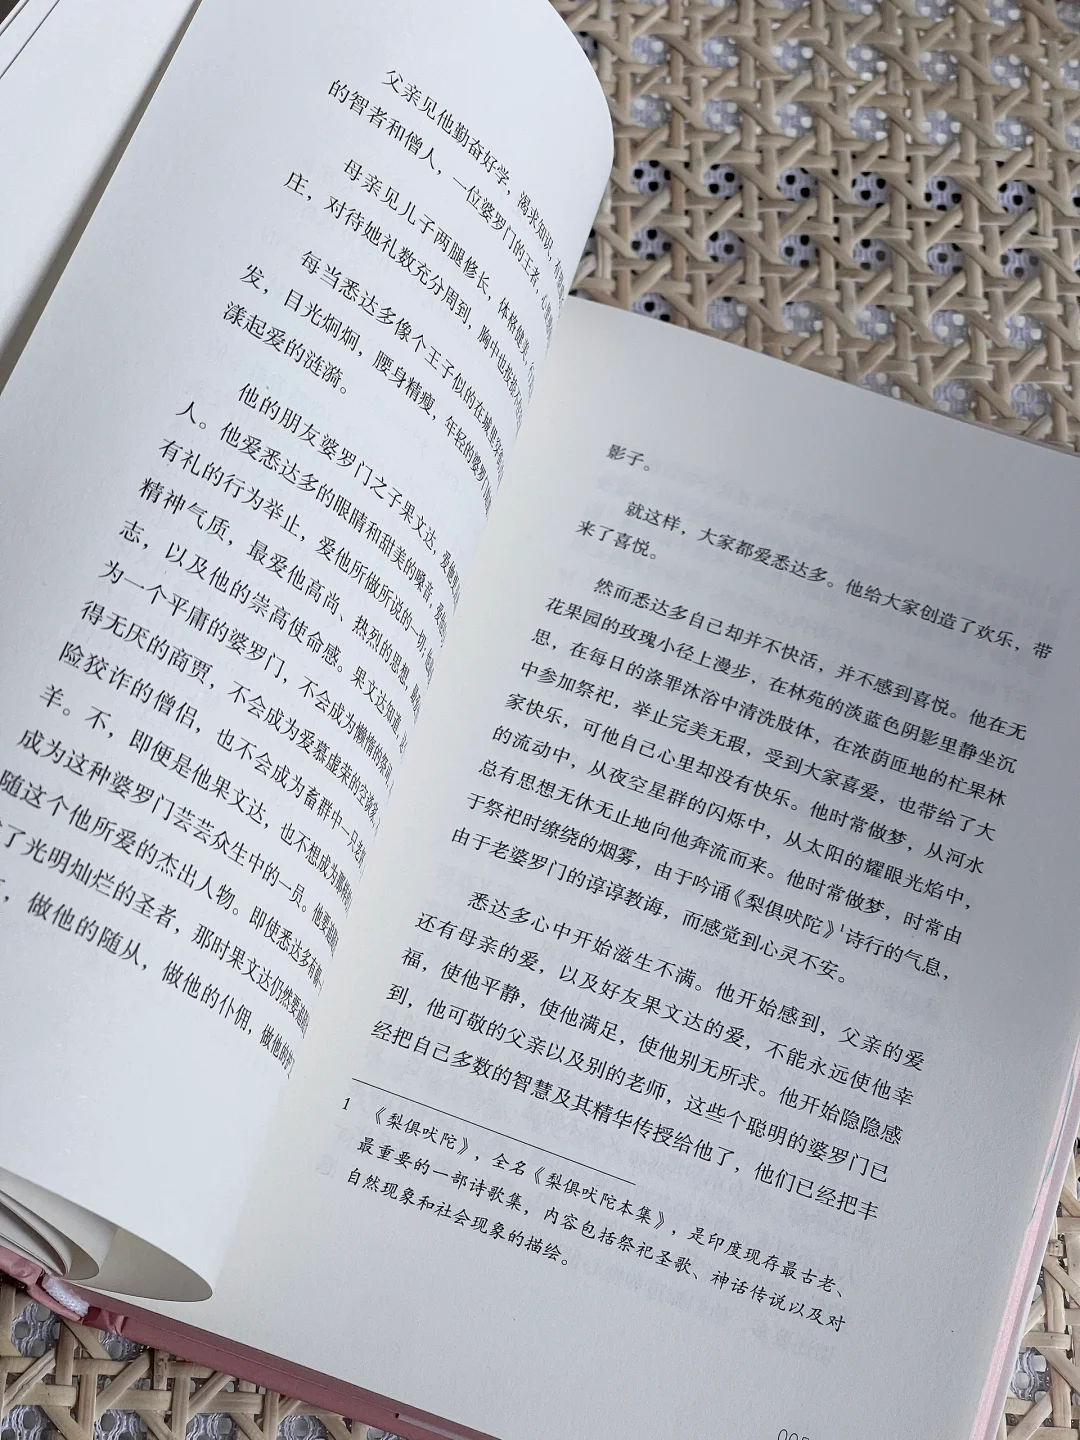 父亲见他勤奋好学，渴求知识，
的智者和僧人，一位婆罗门的王者，
母亲见儿子两腿修长，体格健美，
庄，对待她礼数充分周到，胸中也
每当悉达多像个王子似的在城里
发，目光炯炯，腰身精瘦，年轻的婆罗门
漾起爱的涟漪。
他的朋友婆罗门之子果文达，爱他
人。他爱悉达多的眼睛和甜美的嗓音，爱
有礼的行为举止，爱他所做所说的一切，
精神气质，最爱他高尚、热烈的思想，
志，以及他的崇高使命感。果文达知道，
为一个平庸的婆罗门，不会成为懒惰的祭司，
得无厌的商贾，不会成为爱慕虚荣的空
险狡诈的僧侣，也不会成为畜群中一只
羊。不，即便是他果文达，也不想成为那种
成为这种婆罗门芸芸众生中的一员。他要追随
随这个他所爱的杰出人物。即使悉达多有
了光明灿烂的圣者，那时果文达仍然要追随
，做他的随从，做他的仆佣，做他的
影子。
就这样，大家都爱悉达多。他给大家创造了欢乐，带
来了喜悦。
然而悉达多自己却并不快活，并不感到喜悦。他在无
花果园的玫瑰小径上漫步，在林苑的淡蓝色阴影里静坐沉
思，在每日的涤罪沐浴中清洗肢体，在浓荫匝地的杧果林
中参加祭祀，举止完美无瑕，受到大家喜爱，也带给了大
家快乐，可他自己心里却没有快乐。他时常做梦，从河水
的流动中，从夜空星群的闪烁中，从太阳的耀眼光焰中，
总有思想无休无止地向他奔流而来。他时常做梦，时常由
于祭祀时缭绕的烟雾，由于吟诵《梨俱吠陀》1诗行的气息，
由于老婆罗门的谆谆教诲，而感觉到心灵不安。
悉达多心中开始滋生不满。他开始感到，父亲的爱
还有母亲的爱，以及好友果文达的爱，不能永远使他幸
福，使他平静，使他满足，使他别无所求。他开始隐隐感
到，他可敬的父亲以及别的老师，这些个聪明的婆罗门已
经把自己多数的智慧及其精华传授给他了，他们已经把丰
1 《梨俱吠陀》，全名《梨俱吠陀本集》，是印度现存最古老、
最重要的一部诗歌集，内容包括祭祀圣歌、神话传说以及对
自然现象和社会现象的描绘。